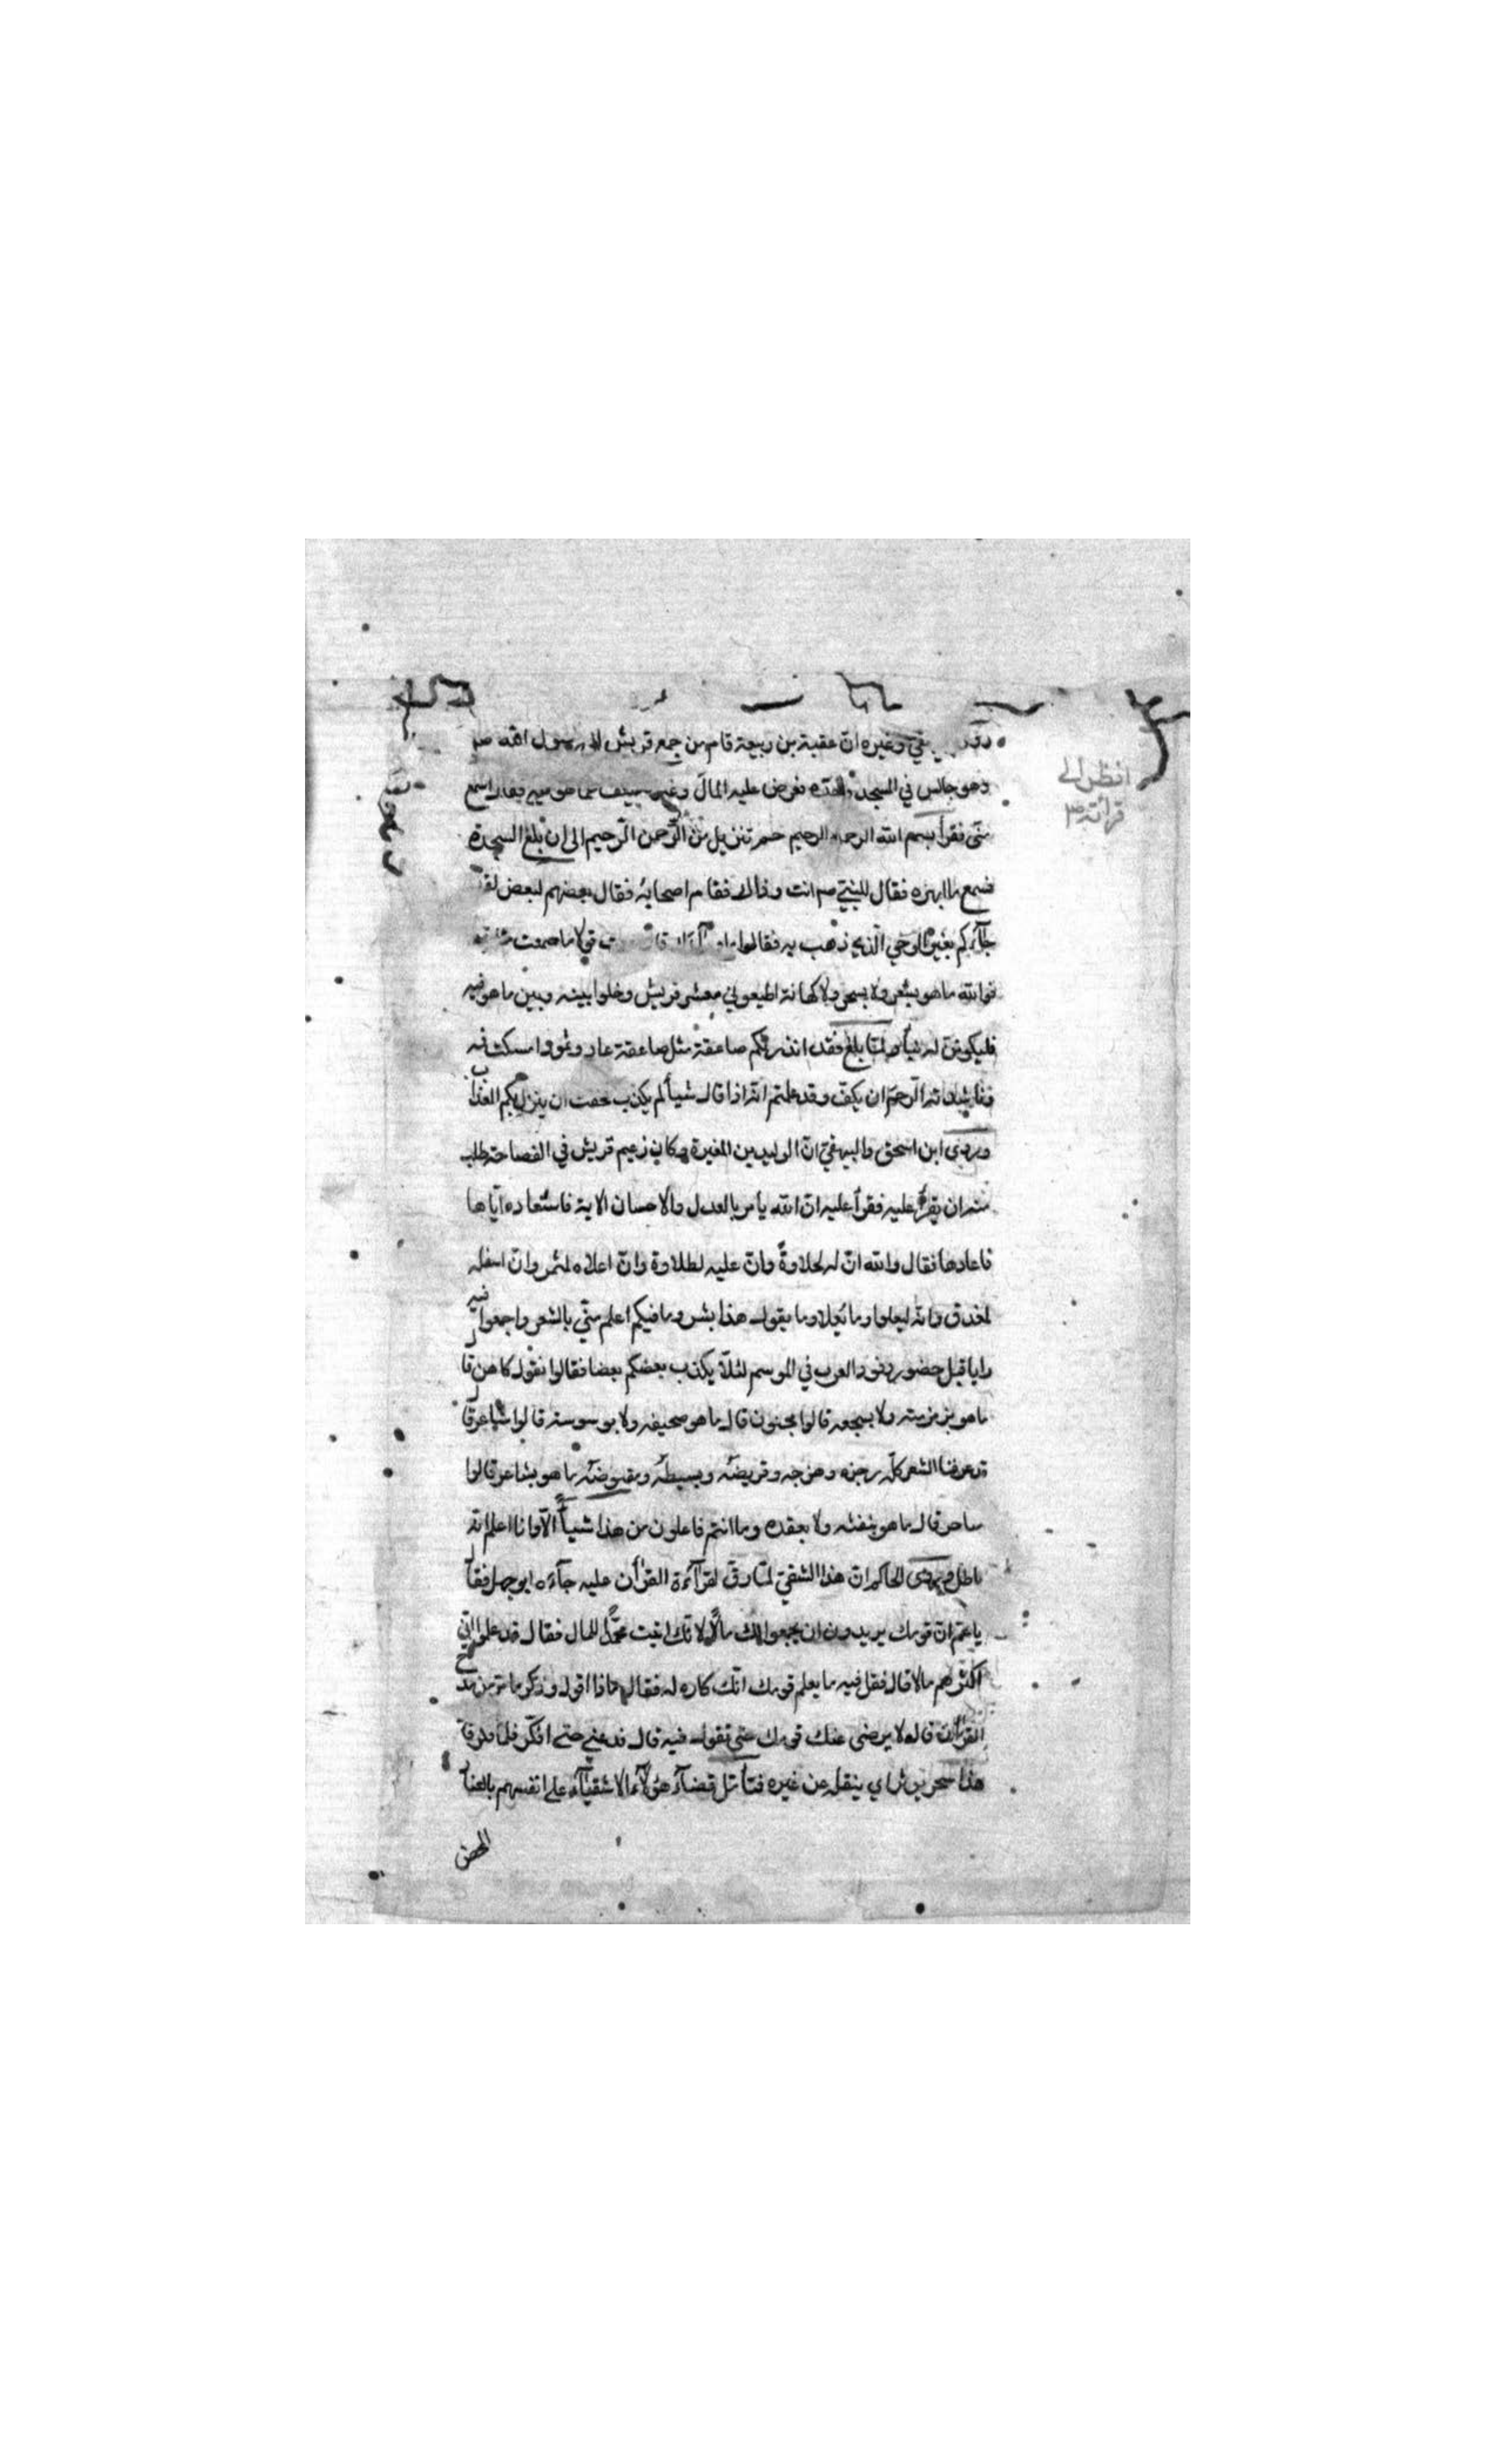 وغيره ان عقبة بن ربيعة قام من جمع قريش الى رسول الله صم
وهو جالس في المسجد وحده فعرض عليه المال وغير مما هو فيه فقال اسمع
منّى فقرأ بسم الله الرحمن الرحيم حم تنزيل من الرّحمن الرّحيم الى ان بلغ السجدة
فسمع ما ابهره فقال للنبيّ صم انت وذاك فقام اصحابه فقال بعضهم لبعض لقد
جآءكم بغير الوجى الّذي ذهب به فقالوا قولا ما سمعت مثله
فوالله ما هو بشعر ولا بسحر ولا كهانة اطيعوني معشر قريش وخلوا بينه وبين ما هو فيه
فليكوننّ له نبأ ولمّا بلغ فقد انذرتكم صاعقة مثل صاعقة عاد وثمود امسكت فيه
فناشدته الرّحم ان يكفّ وقد علمتم انّه اذا قال شيأ لم يكذب خفت ان ينزل بكم العذاب
وروى ابن اسحق والبيهقيّ انّ الوليد بن المغيرة وكان زعيم قريش في الفصاحة طلب
منه ان يقرأ عليه فقرأ عليه انّ الله يأمر بالعدل والاحسان الاية فاستعاده ايّاها
فاعادها فقال والله انّ له لحلاوةً وانّ عليه لطلاوة وانّ اعلاه لمثمر وانّ اسفله
لمغدق وانّه ليعلوا وما يُعلا وما يقول هذا بشر وما فيكم اعلم منّي بالشعر واجمعوا فيه
رايا قبل حضور وفود العرب في الموسم لئلّا يكذب بعضكم بعضا فقالوا نقول كاهن قال
ما هو بزمزمته ولا بسجعه قالوا مجنون قال ما هو بخنقه ولا بوسوسته قالوا شاعر قال
قد عرفنا الشعر كلّه رجزه وهزجه وقريضه وبسيطه ومقبوضه ما هو بشاعر قالوا
ساحر قال ما هو بنفثه ولا بعقده وما انتم فاعلون من هذا شيأً الّا وانا اعلم انّه
باطل وروى الحاكم انّ هذا الشقيّ لمّا رقّ لقرآءة القرأن عليه جآءه ابو جهل فقال
يا عمّ انّ قومك يريدون ان يجمعوا لك مالًا لانّك اتيت محمّدًا للمال فقال قد علموا انّي
اكثرهم مالا قال فقل فيه ما يعلم قومك انّك كاره له فقال ماذا اقول وذكر ما مرّ من مدح
القرأن قال لا يرضى عنك قومك حتى تقول فيه قال فدعني حتى افكّر فلمّا فكر قال
هذا سحر يؤثر اي ينقله عن غيره فتأمّل قضآء هؤلآء الاشقيآء على انفسهم بالعناد
المحض
انظر الى
قرائته صم